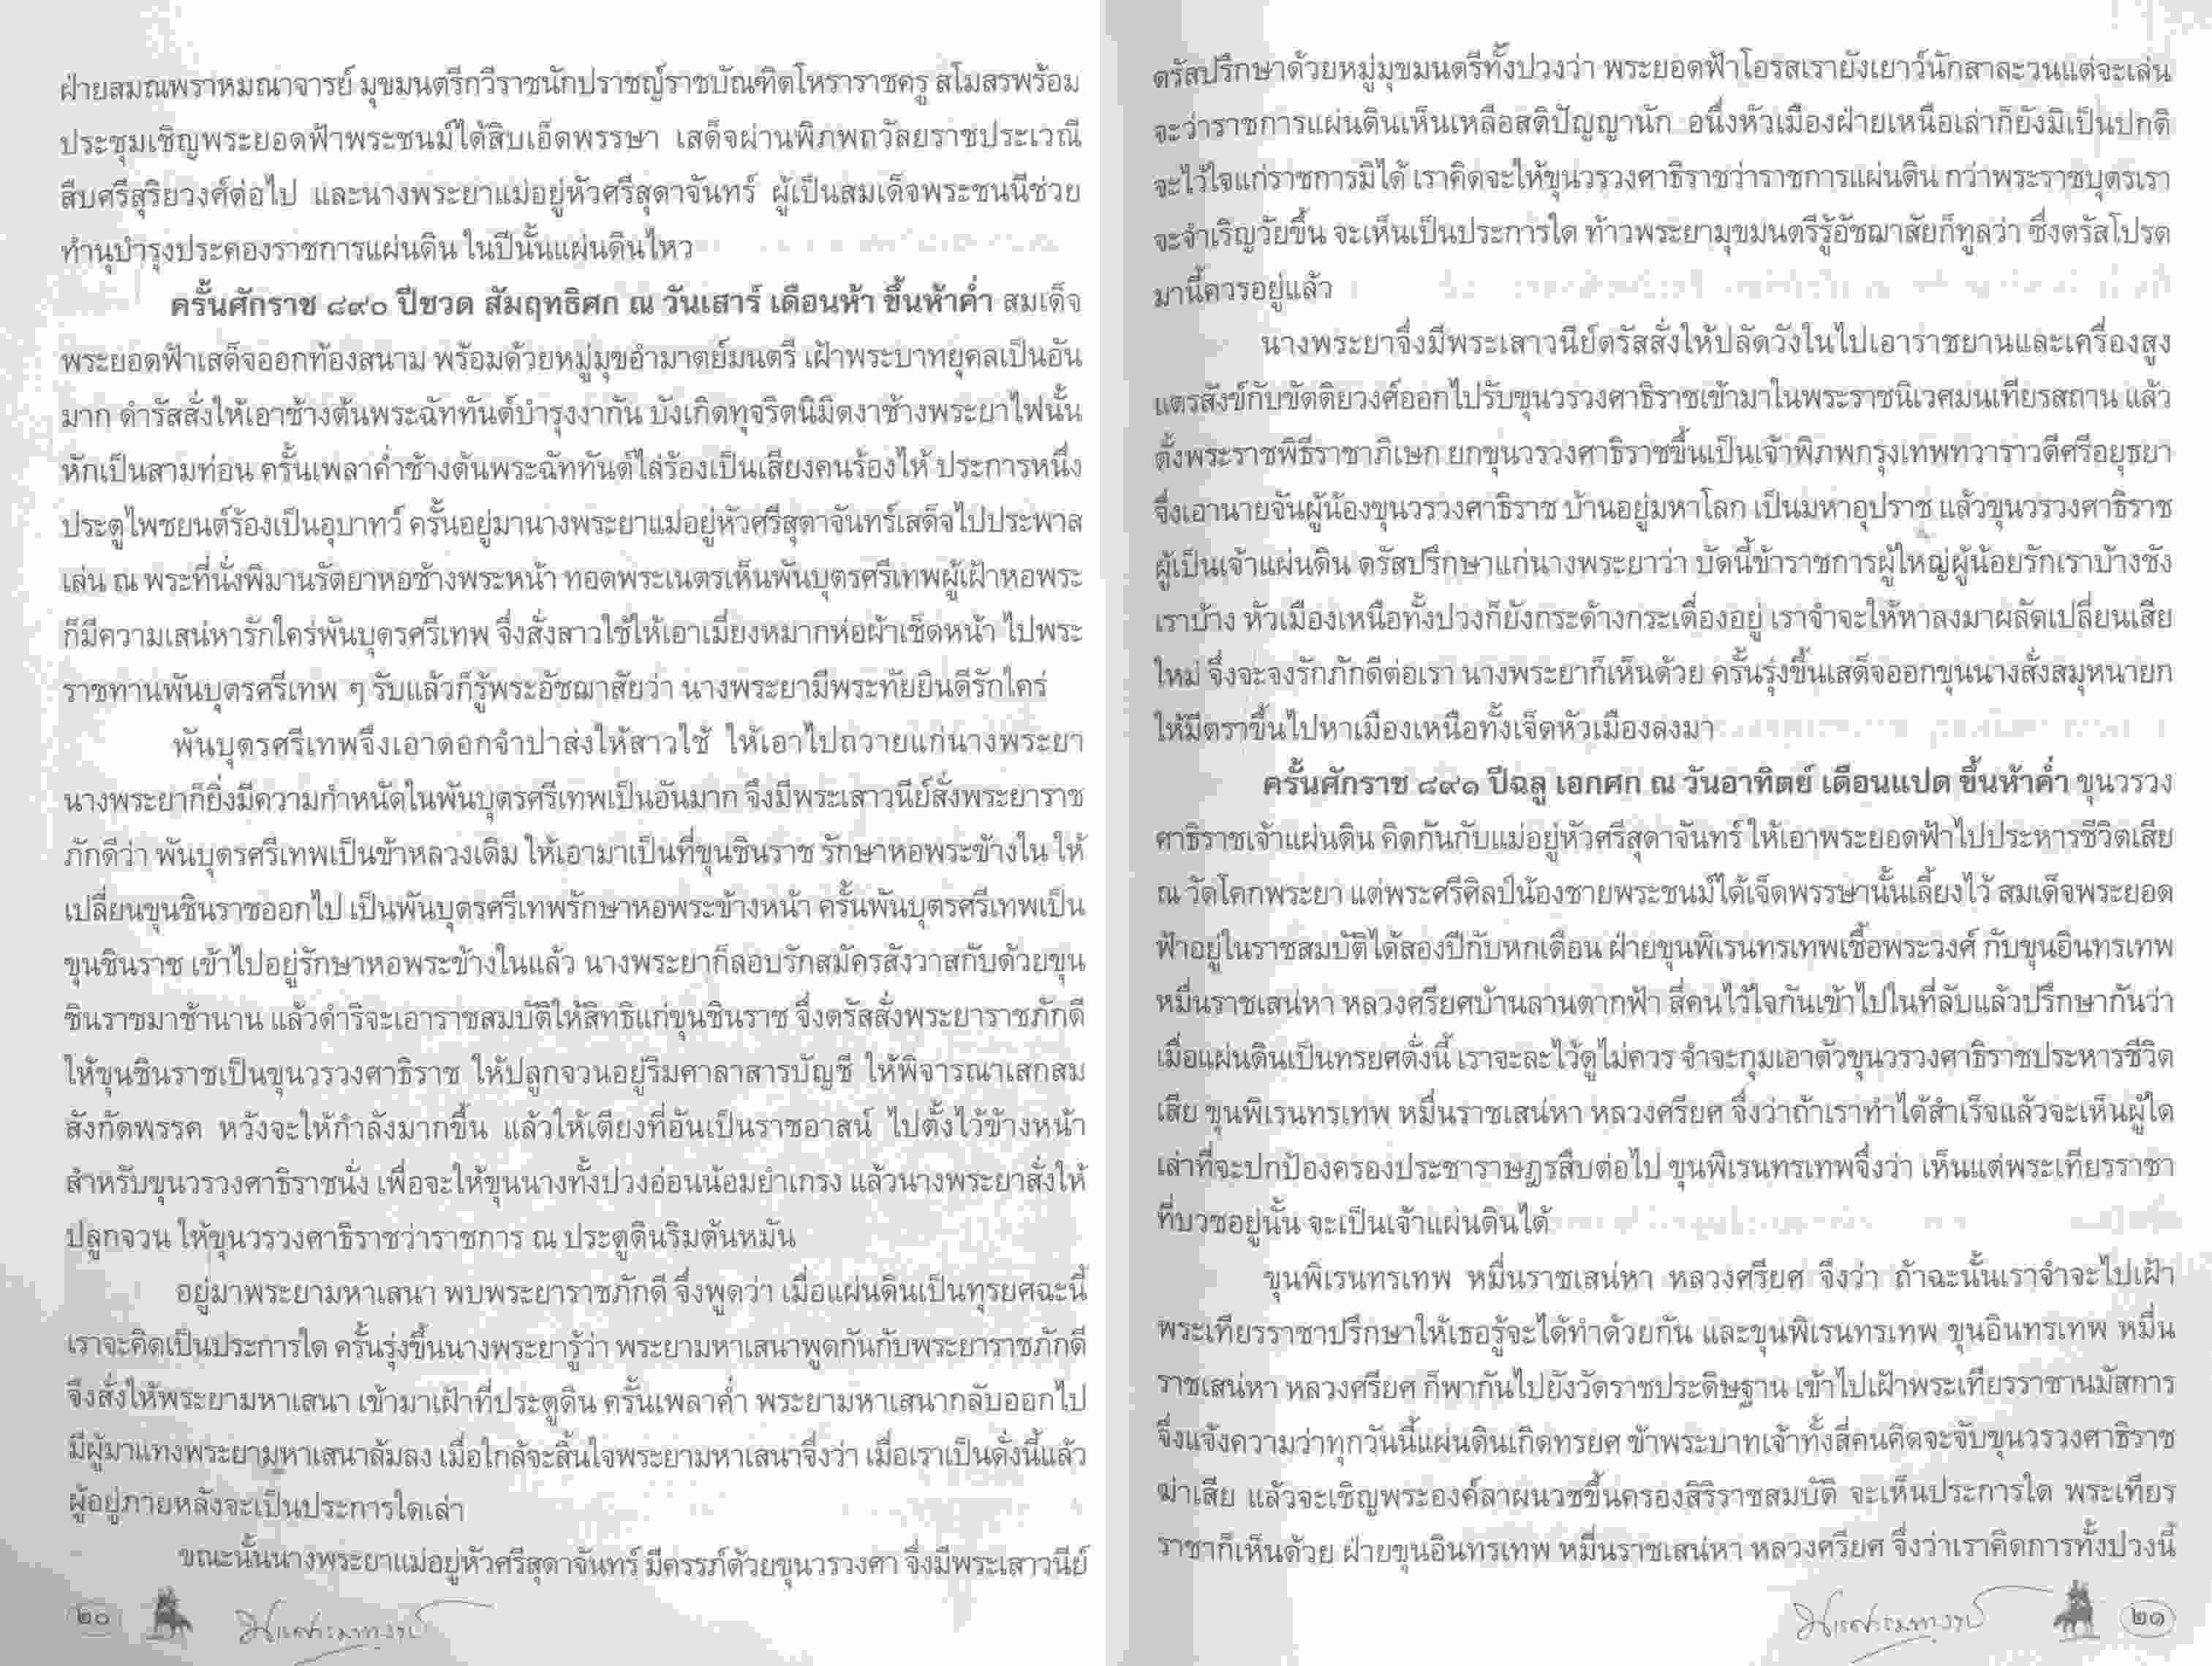 ฝ่ายสมณพราหมณาจารย์ มุขมนตรีกวีราชนักปราชญ์ราชบัณฑิตโหราราชครู สโมสรพร้อม
ประชุมเชิญพระยอดฟ้าพระชนม์ได้สิบเอ็ดพรรษา เสด็จผ่านพิภพถวัลยราชประเวณี
สืบศรีสุริยวงศ์ต่อไป และนางพระยาแม่อยู่หัวศรีสุดาจันทร์ ผู้เป็นสมเด็จพระชนนีช่วย
ทำนุบำรุงประคองราชการแผ่นดิน ในปีนั้นแผ่นดินไหว
ครั้นศักราช ๘๙๐ ปีชวด สัมฤทธิศก ณ วันเสาร์ เดือนห้า ขึ้นห้าค่ำ สมเด็จ
พระยอดฟ้าเสด็จออกท้องสนาม พร้อมด้วยหมู่มุขอำมาตย์มนตรี เฝ้าพระบาทยุคลเป็นอัน
มาก ดำรัสสั่งให้เอาช้างต้นพระฉัททันต์บำรุงงากัน บังเกิดทุจริตนิมิตงาช้างพระยาไฟนั้น
หักเป็นสามท่อน ครั้นเพลาค่ำช้างต้นพระฉัททันต์ไล่ร้องเป็นเสียงคนร้องไห้ ประการหนึ่ง
ประตูไพชยนต์ร้องเป็นอุบาทว์ ครั้นอยู่มานางพระยาแม่อยู่หัวศรีสุดาจันทร์เสด็จไปประพาส
เล่น ณ พระที่นั่งพิมานรัตยาหอช้างพระหน้า ทอดพระเนตรเห็นพันบุตรศรีเทพผู้เฝ้าหอพระ
ก็มีความเสน่หารักใคร่พันบุตรศรีเทพ จึ่งสั่งสาวใช้ให้เอาเมี่ยงหมากห่อผ้าเช็ดหน้า ไปพระ
ราชทานพันบุตรศรีเทพ ๆ รับแล้วก็รู้พระอัชฌาสัยว่า นางพระยามีพระทัยยินดีรักใคร่
พันบุตรศรีเทพจึงเอาดอกจำปาส่งให้สาวใช้ ให้เอาไปถวายแก่นางพระยา
นางพระยาก็ยิ่งมีความกำหนัดในพันบุตรศรีเทพเป็นอันมาก จึงมีพระเสาวนีย์สั่งพระยาราช
ภักดีว่า พันบุตรศรีเทพเป็นข้าหลวงเดิม ให้เอามาเป็นที่ขุนชินราช รักษาหอพระข้างใน ให้
เปลี่ยนขุนชินราชออกไป เป็นพันบุตรศรีเทพรักษาหอพระข้างหน้า ครั้นพันบุตรศรีเทพเป็น
ขุนชินราช เข้าไปอยู่รักษาหอพระข้างในแล้ว นางพระยาก็ลอบรักสมัครสังวาสกับด้วยขุน
ชินราชมาช้านาน แล้วดำริจะเอาราชสมบัติให้สิทธิแก่ขุนชินราช จึ่งตรัสสั่งพระยาราชภักดี
ให้ขุนชินราชเป็นขุนวรวงศาธิราช ให้ปลูกจวนอยู่ริมศาลาสารบัญชี ให้พิจารณาเสกสม
สังกัดพรรค หวังจะให้กำลังมากขึ้น แล้วให้เตียงที่อันเป็นราชอาสน์ ไปตั้งไว้ข้างหน้า
สำหรับขุนวรวงศาธิราชนั่ง เพื่อจะให้ขุนนางทั้งปวงอ่อนน้อมยำเกรง แล้วนางพระยาสั่งให้
ปลูกจวน ให้ขุนวรวงศาธิราชว่าราชการ ณ ประตูดินริมต้นหมัน
อยู่มาพระยามหาเสนา พบพระยาราชภักดี จึ่งพูดว่า เมื่อแผ่นดินเป็นทุรยศฉะนี้
เราจะคิดเป็นประการใด ครั้นรุ่งขึ้นนางพระยารู้ว่า พระยามหาเสนาพูดกันกับพระยาราชภักดี
จึงสั่งให้พระยามหาเสนา เข้ามาเฝ้าที่ประตูดิน ครั้นเพลาค่ำ พระยามหาเสนากลับออกไป
มีผู้มาแทงพระยามหาเสนาล้มลง เมื่อใกล้จะสิ้นใจพระยามหาเสนาจึ่งว่า เมื่อเราเป็นดั่งนี้แล้ว
ผู้อยู่ภายหลังจะเป็นประการใดเล่า
ขณะนั้นนางพระยาแม่อยู่หัวศรีสุดาจันทร์ มีครรภ์ด้วยขุนวรวงศา จึ่งมีพระเสาวนีย์
๒๐
ตรัสปรึกษาด้วยหมู่มุขมนตรีทั้งปวงว่า พระยอดฟ้าโอรสเรายังเยาว์นักสาละวนแต่จะเล่น
จะว่าราชการแผ่นดินเห็นเหลือสติปัญญานัก อนึ่งหัวเมืองฝ่ายเหนือเล่าก็ยังมิเป็นปกติ
จะไว้ใจแก่ราชการมิได้ เราคิดจะให้ขุนวรวงศาธิราชว่าราชการแผ่นดิน กว่าพระราชบุตรเรา
จะจำเริญวัยขึ้น จะเห็นเป็นประการใด ท้าวพระยามุขมนตรีรู้อัชฌาสัยก็ทูลว่า ซึ่งตรัสโปรด
มานี้ควรอยู่แล้ว
นางพระยาจึ่งมีพระเสาวนีย์ตรัสสั่งให้ปลัดวังในไปเอาราชยานและเครื่องสูง
แตรสังข์กับขัตติยวงศ์ออกไปรับขุนวรวงศาธิราชเข้ามาในพระราชนิเวศมนเทียรสถาน แล้ว
ตั้งพระราชพิธีราชาภิเษก ยกขุนวรวงศาธิราชขึ้นเป็นเจ้าพิภพกรุงเทพทวาราวดีศรีอยุธยา
จึ่งเอานายจันผู้น้องขุนวรวงศาธิราช บ้านอยู่มหาโลก เป็นมหาอุปราช แล้วขุนวรวงศาธิราช
ผู้เป็นเจ้าแผ่นดิน ตรัสปรึกษาแก่นางพระยาว่า บัดนี้ข้าราชการผู้ใหญ่ผู้น้อยรักเราบ้างชัง
เราบ้าง หัวเมืองเหนือทั้งปวงก็ยังกระด้างกระเดื่องอยู่ เราจำจะให้หาลงมาผลัดเปลี่ยนเสีย
ใหม่ จึ่งจะจงรักภักดีต่อเรา นางพระยาก็เห็นด้วย ครั้นรุ่งขึ้นเสด็จออกขุนนางสั่งสมุหนายก
ให้มีตราขึ้นไปหาเมืองเหนือทั้งเจ็ดหัวเมืองลงมา
ครั้นศักราช ๘๙๑ ปีฉลู เอกศก ณ วันอาทิตย์ เดือนแปด ขึ้นห้าค่ำ ขุนวรวง
ศาธิราชเจ้าแผ่นดิน คิดกันกับแม่อยู่หัวศรีสุดาจันทร์ ให้เอาพระยอดฟ้าไปประหารชีวิตเสีย
ณ วัดโคกพระยา แต่พระศรีศิลป์น้องชายพระชนม์ได้เจ็ดพรรษานั้นเลี้ยงไว้ สมเด็จพระยอด
ฟ้าอยู่ในราชสมบัติได้สองปีกับหกเดือน ฝ่ายขุนพิเรนทรเทพเชื้อพระวงศ์ กับขุนอินทรเทพ
หมื่นราชเสน่หา หลวงศรียศบ้านลานตากฟ้า สี่คนไว้ใจกันเข้าไปในที่ลับแล้วปรึกษากันว่า
เมื่อแผ่นดินเป็นทรยศดั่งนี้ เราจะละไว้ดูไม่ควร จำจะกุมเอาตัวขุนวรวงศาธิราชประหารชีวิต
เสีย ขุนพิเรนทรเทพ หมื่นราชเสน่หา หลวงศรียศ จึ่งว่าถ้าเราทำได้สำเร็จแล้วจะเห็นผู้ใด
เล่าที่จะปกป้องครองประชาราษฎรสืบต่อไป ขุนพิเรนทรเทพจึ่งว่า เห็นแต่พระเทียรราชา
ที่บวชอยู่นั้น จะเป็นเจ้าแผ่นดินได้
ขุนพิเรนทรเทพ หมื่นราชเสน่หา หลวงศรียศ จึงว่า ถ้าฉะนั้นเราจำจะไปเฝ้า
พระเทียรราชาปรึกษาให้เธอรู้จะได้ทำด้วยกัน และขุนพิเรนทรเทพ ขุนอินทรเทพ หมื่น
ราชเสน่หา หลวงศรียศ ก็พากันไปยังวัดราชประดิษฐาน เข้าไปเฝ้าพระเทียรราชานมัสการ
จึ่งแจ้งความว่าทุกวันนี้แผ่นดินเกิดทรยศ ข้าพระบาทเจ้าทั้งสี่คนคิดจะจับขุนวรวงศาธิราช
ฆ่าเสีย แล้วจะเชิญพระองค์ลาผนวชขึ้นครองสิริราชสมบัติ จะเห็นประการใด พระเทียร
ราชาก็เห็นด้วย ฝ่ายขุนอินทรเทพ หมื่นราชเสน่หา หลวงศรียศ จึ่งว่าเราคิดการทั้งปวงนี้
๒๑